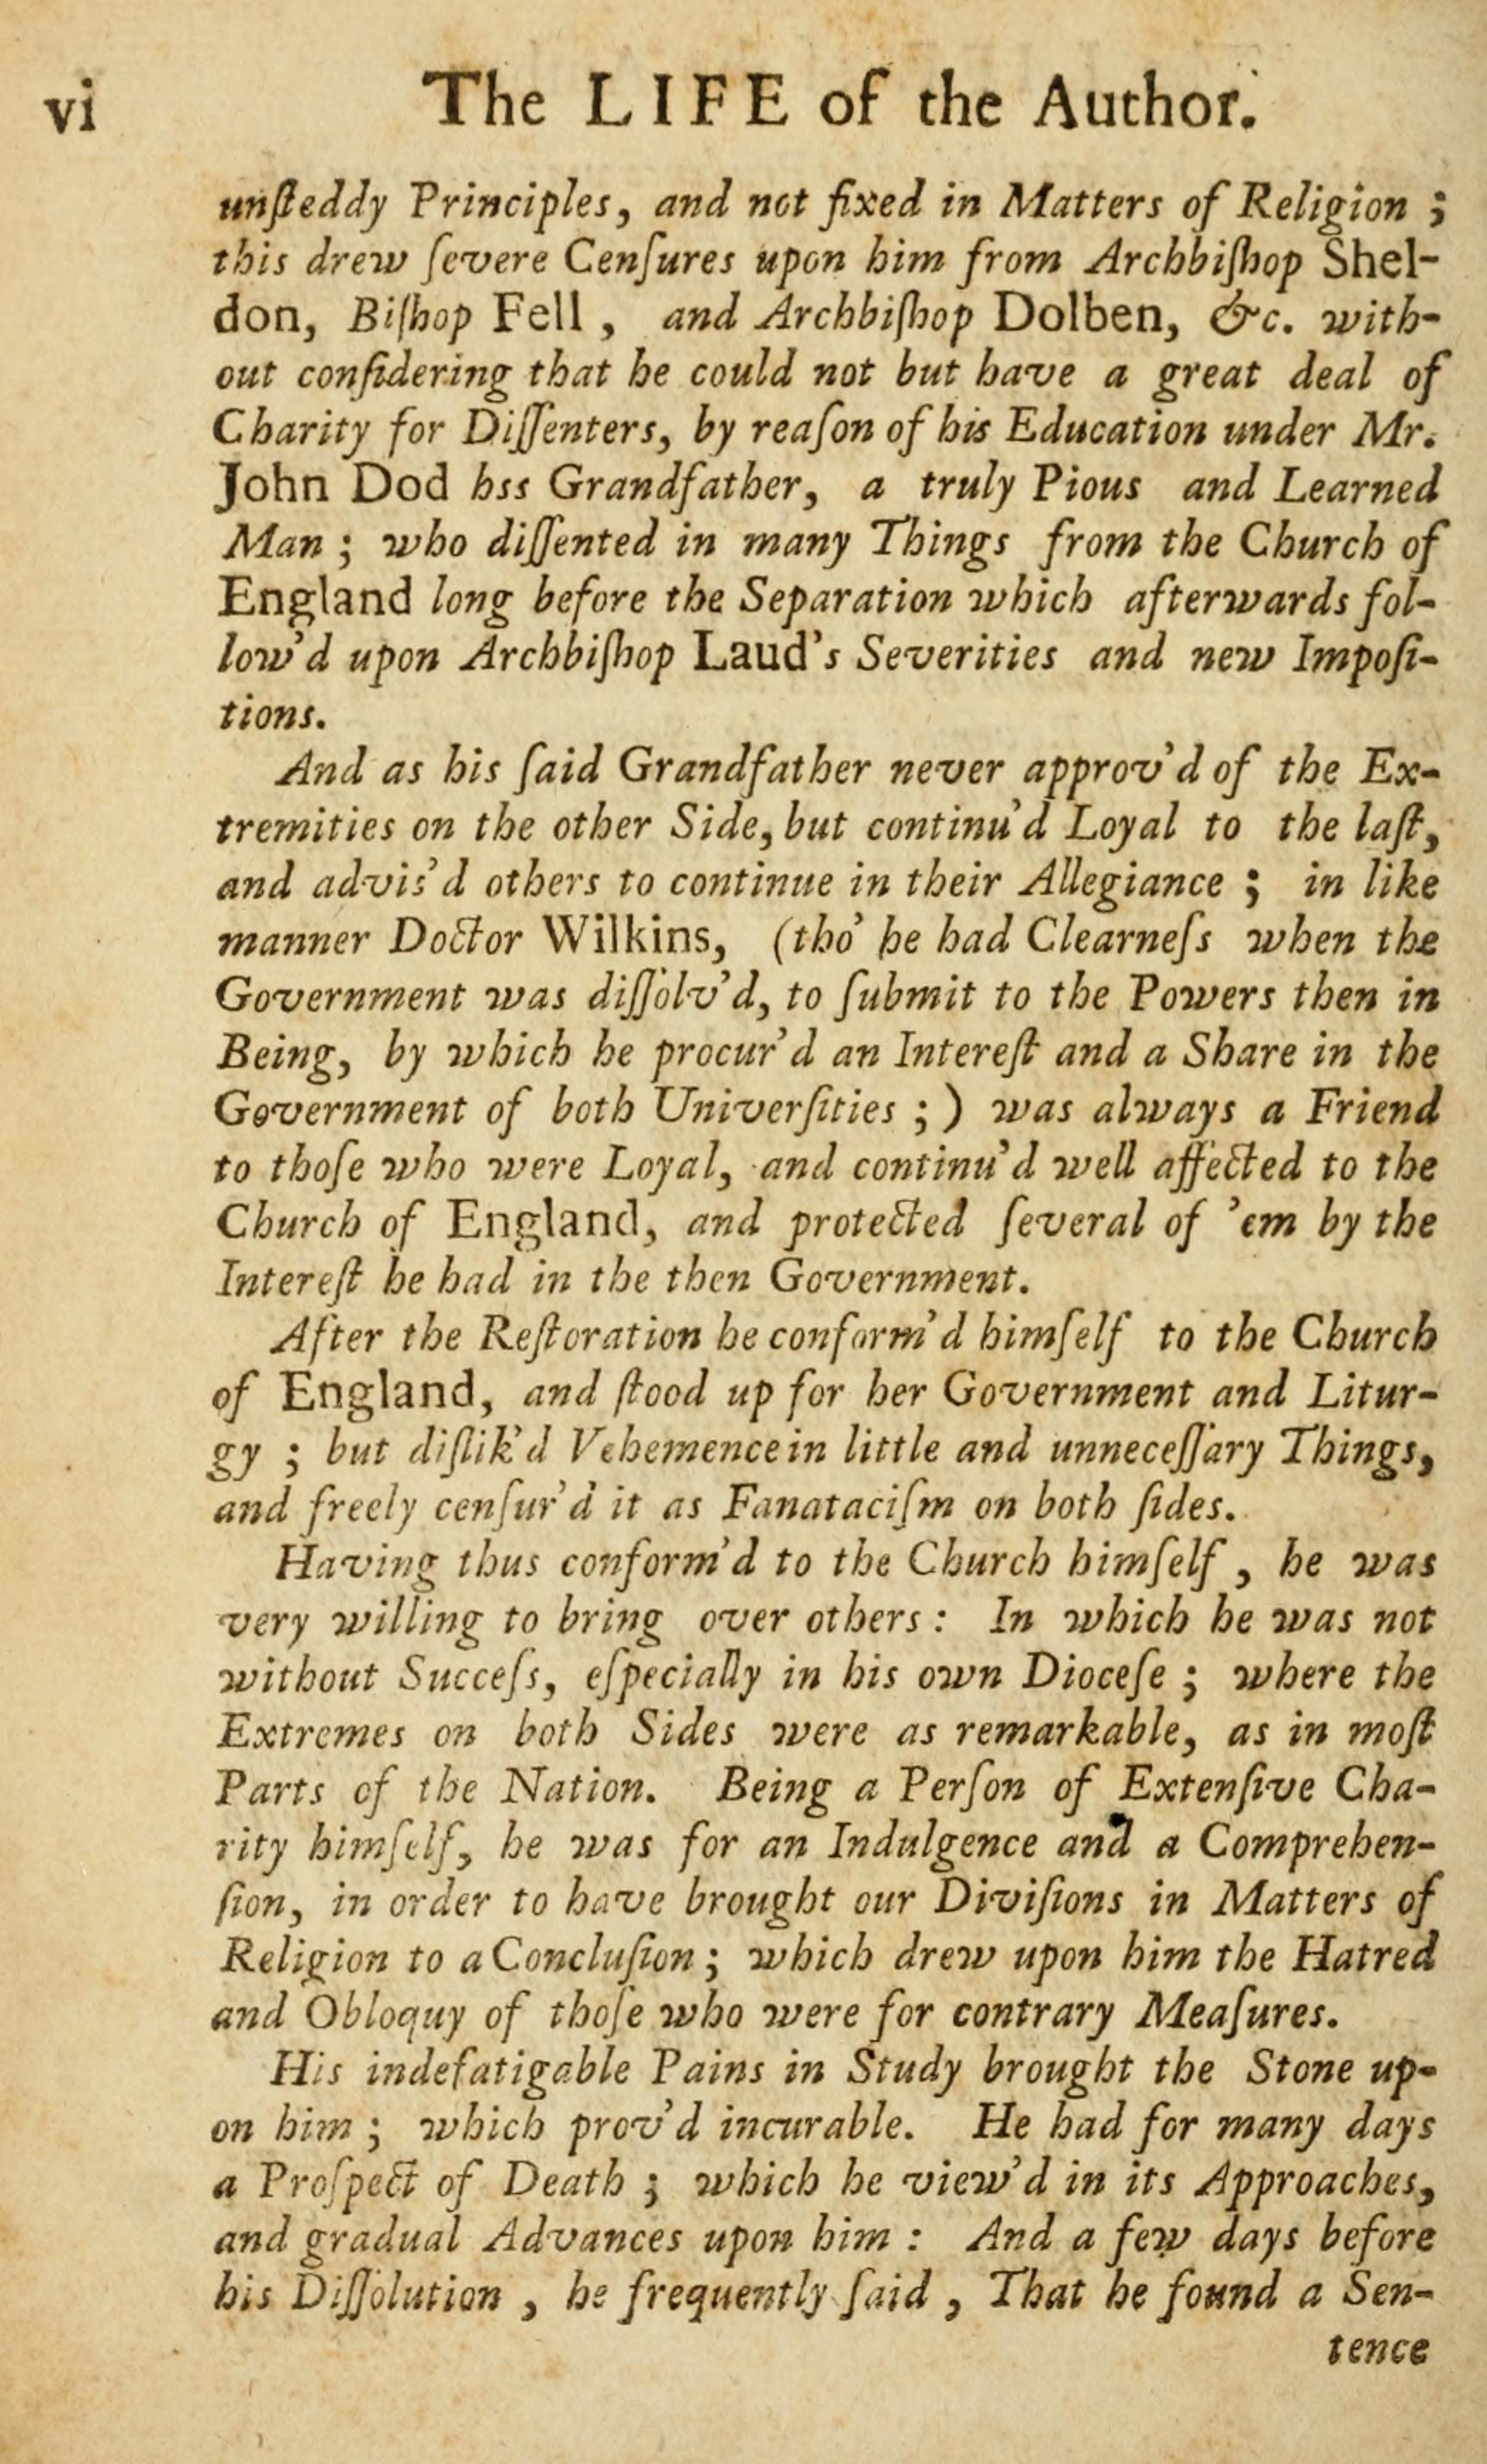 vi The LIFE of the Author.
unſteddy Principles, and not fixed in Matters of Religion ;
this drew ſevere Cenſures upon him from Archbiſhop Shel-
don, Biſhop Fell , and Archbiſhop Dolben, &c. with-
out conſidering that he could not but have a great deal of
Charity for Diſſenters, by reaſon of his Education under Mr.
John Dod hss Grandfather, a truly Pious and Learned
Man ; who diſſented in many Things from the Church of
England long before the Separation which afterwards fol-
low'd upon Archbiſhop Laud's Severities and new Impoſi-
tions.
And as his ſaid Grandfather never approv'd of the Ex-
tremities on the other Side, but continu'd Loyal to the laſt,
and advis'd others to continue in their Allegiance ; in like
manner Doctor Wilkins, (tho' he had Clearneſs when the
Government was diſſolv'd, to ſubmit to the Powers then in
Being, by which he procur'd an Intereſt and a Share in the
Government of both Univerſities ; ) was always a Friend
to thoſe who were Loyal, and continu'd well affected to the
Church of England, and protected ſeveral of 'em by the
Intereſt he had in the then Government.
After the Reſtoration he conform'd himſelf to the Church
of England, and ſtood up for her Government and Litur-
gy ; but diſlik'd Vehemence in little and unneceſſary Things,
and freely cenſur'd it as Fanataciſm on both ſides.
Having thus conform'd to the Church himſelf , he was
very willing to bring over others : In which he was not
without Succeſs, eſpecially in his own Dioceſe ; where the
Extremes on both Sides were as remarkable, as in moſt
Parts of the Nation. Being a Perſon of Extenſive Cha-
rity himſelf, he was for an Indulgence and a Comprehen-
ſion, in order to have brought our Diviſions in Matters of
Religion to a Concluſion ; which drew upon him the Hatred
and Obloquy of thoſe who were for contrary Meaſures.
His indefatigable Pains in Study brought the Stone up-
on him ; which prov'd incurable. He had for many days
a Proſpect of Death ; which he view'd in its Approaches,
and gradual Advances upon him : And a few days before
his Diſſolution , he frequently ſaid , That he found a Sen-
tence